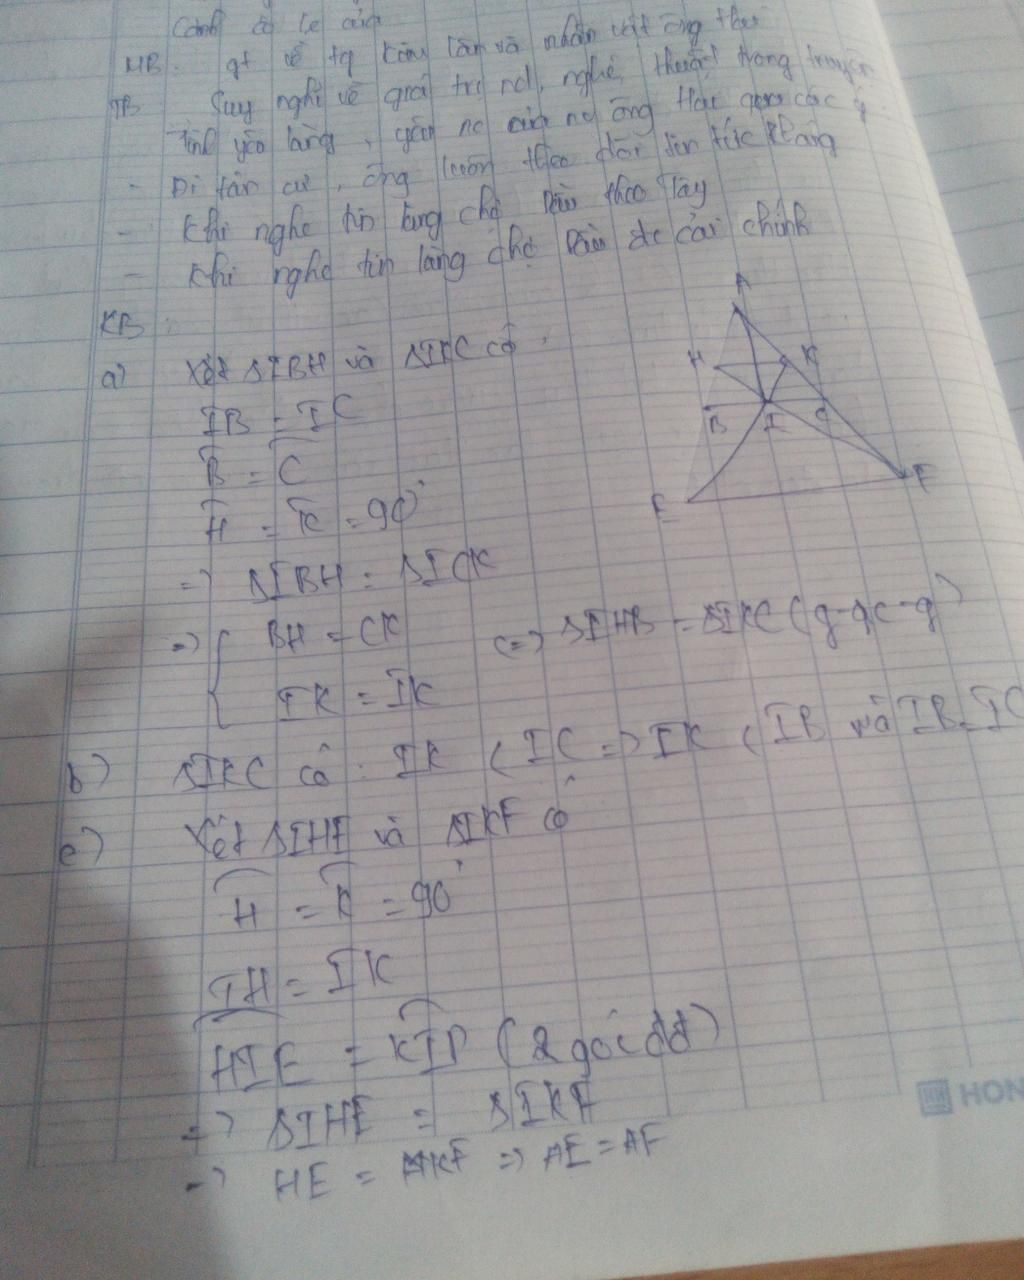 MB: gt về tg Kim Lân và nhân vật ông Hai
TB Suy nghĩ về giá trị nd, nghệ thuật trong truyện
Tình yêu làng, yêu nc của nv ông Hai qua các ý
- Di tản cư, ông luôn theo dõi tin tức kháng
- Khi nghe tin làng chợ Dầu theo Tây
- Khi nghe tin làng chợ Dầu đc cải chính
KB:
a) Xét ΔIBH và ΔIKC có
IB = IC
B = C
H = K = 90°
=> ΔIBH = ΔICK
=> { BH = CK
IK = IK
(=> ΔIHB = ΔIKC (g-gc-g)
b) ΔIKC có: IK < IC => IK < IB và IB = IC
c) Xét ΔIHE và ΔIKF có
H = K = 90°
IH = IK
HIE = KIF (2 góc đđ)
=> ΔIHE = ΔIKF
=> HE = KF => AE = AF
A
H K
B I C
E F
HON